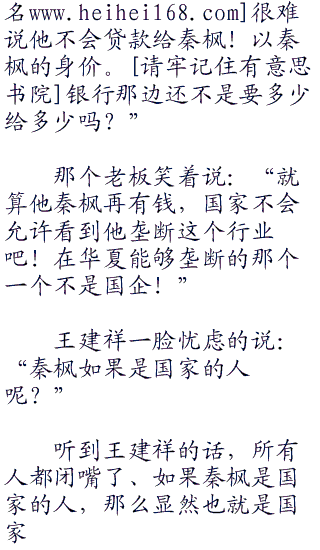 名www.heihei168.com]很难
说他不会贷款给秦枫！以秦
枫的身价。[请牢记住有意思
书院]银行那边还不是要多少
给多少吗？”
那个老板笑着说：“就
算他秦枫再有钱，国家不会
允许看到他垄断这个行业
吧！在华夏能够垄断的那个
一个不是国企！”
王建祥一脸忧虑的说：
“秦枫如果是国家的人
呢？”
听到王建祥的话，所有
人都闭嘴了、如果秦枫是国
家的人，那么显然也就是国
家